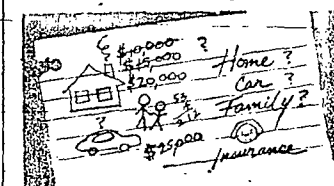 $10,000 ?
$15,000
$20,000
Home ?
Car ?
Family ?
?
$25,000
Insurance